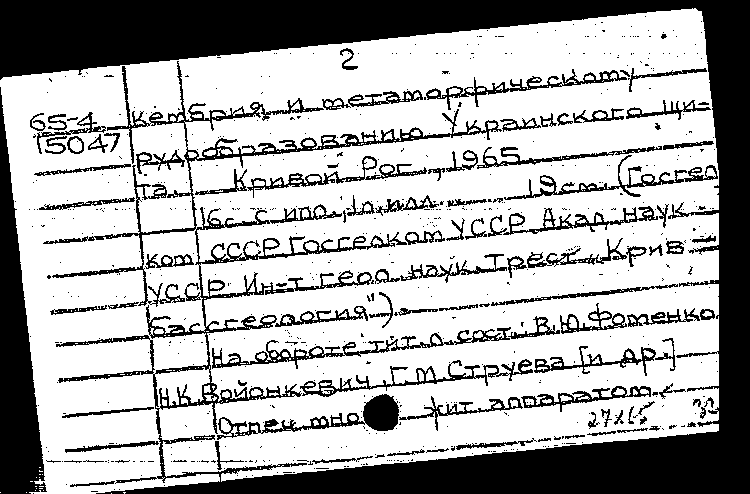 2
65-4 кембрия и метаморфическому
15047 рудообразованию Украинского щи-
та. Кривой Рог, 1965.
16с с илл., 1л. илл. 19см. (Госгел
ком СССР Госгелком УССР Акад. наук
УССР Ин-т геол. наук. Трест „Крив-
бассгеология").
На обороте тит. л. сост.: В.Ю.Фоменко
Н.К.Войонкевич, Г.М.Струева [и др.]
Отпеч. мно жит. аппаратом.
32